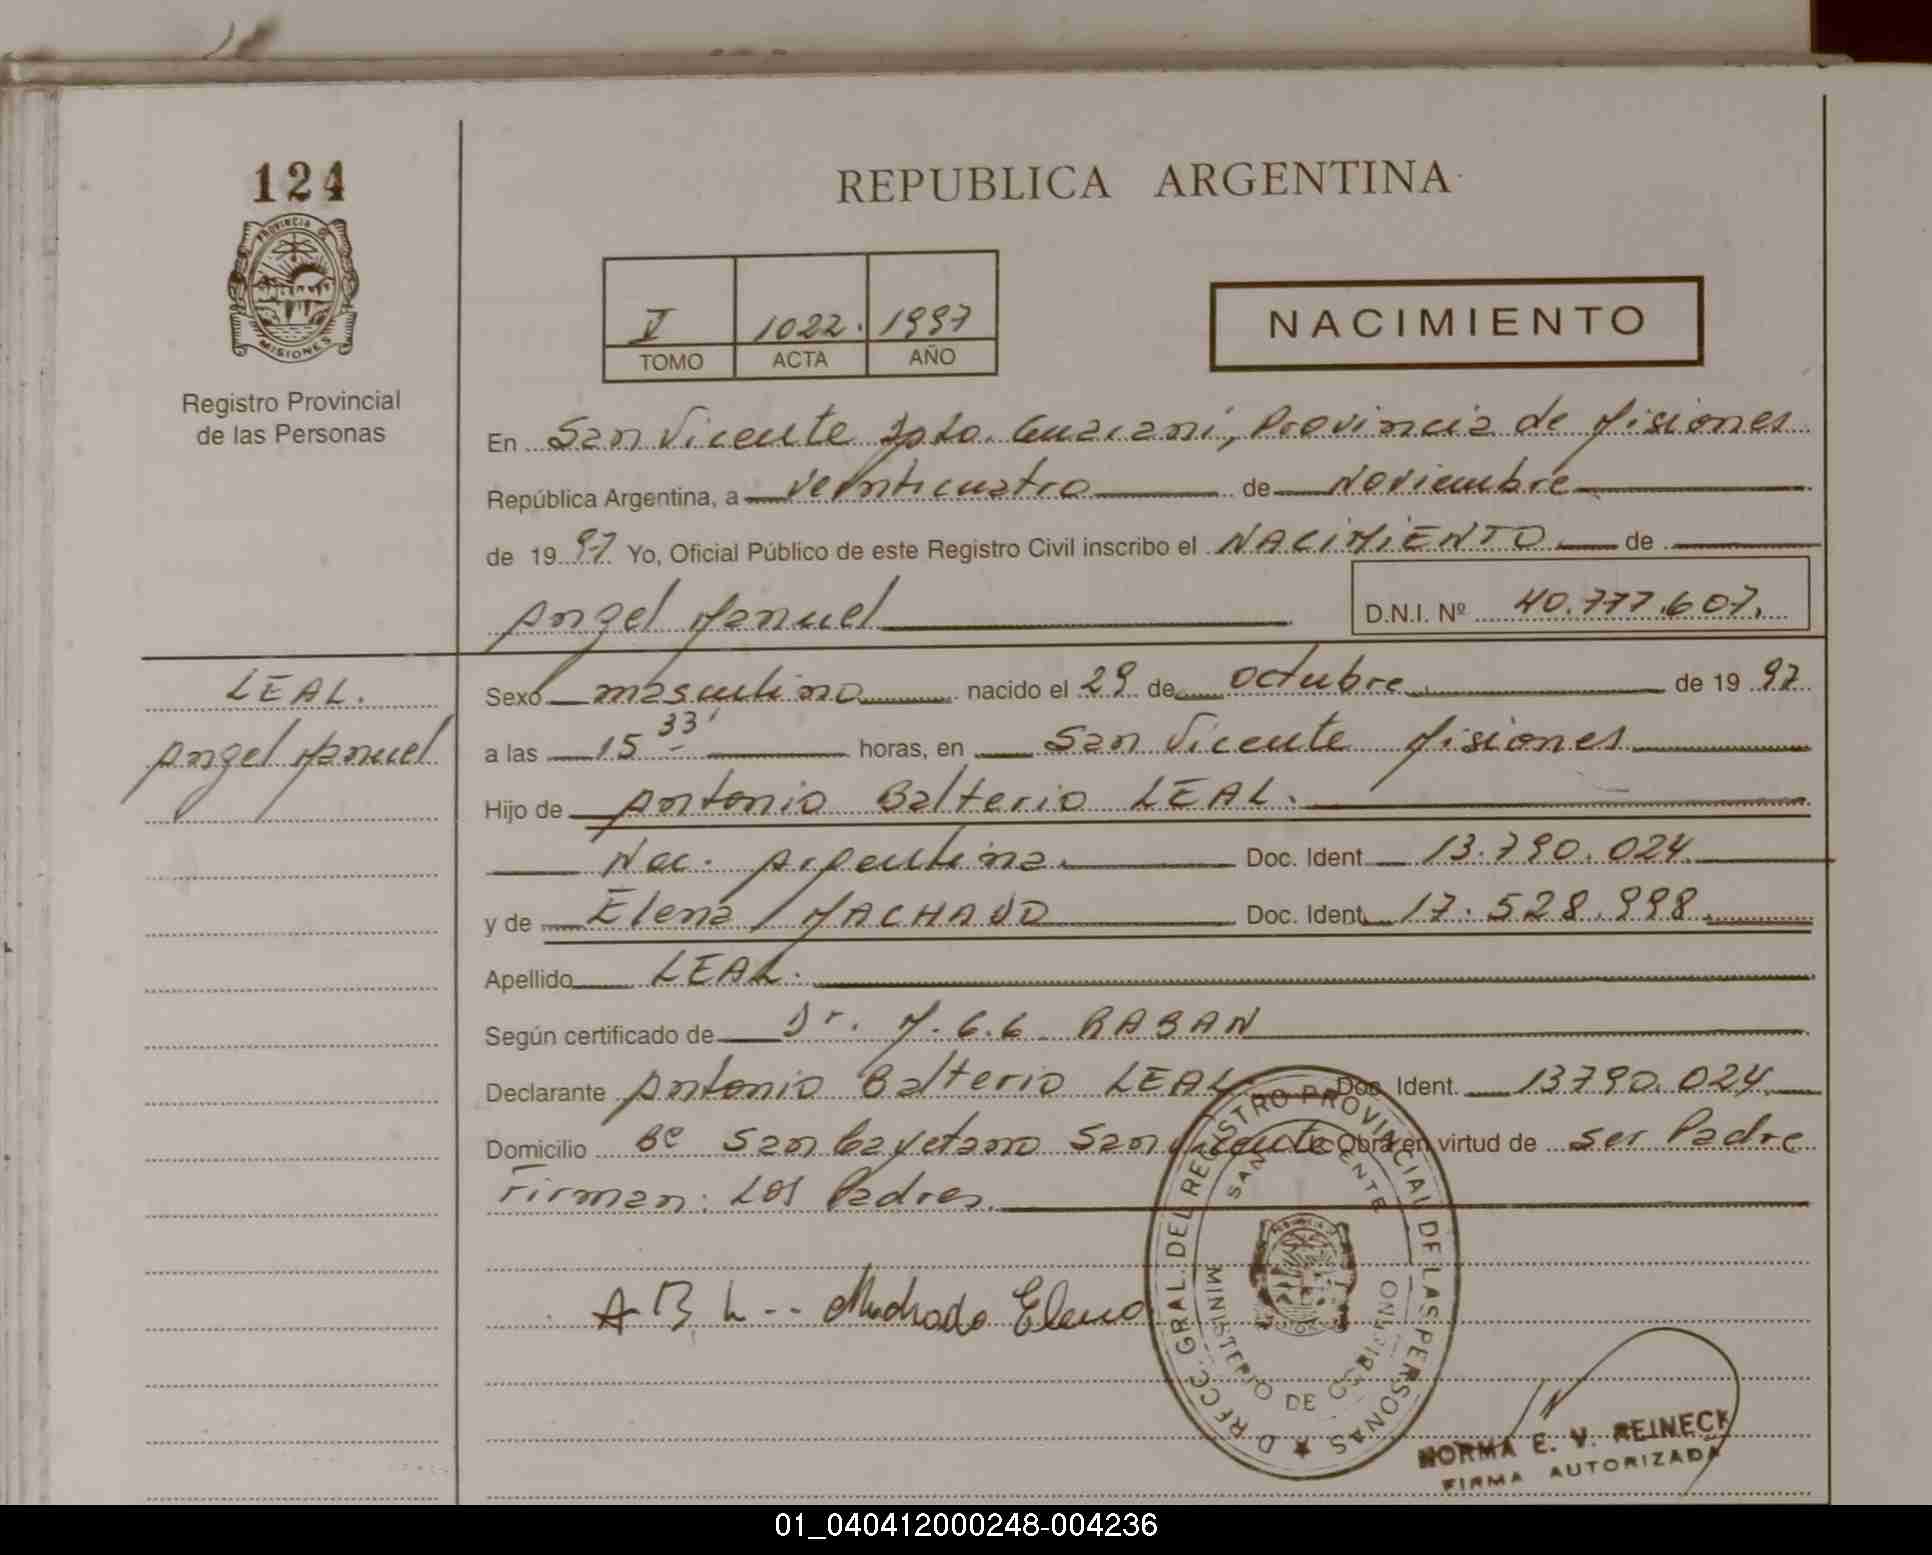 124
PROVINCIA DE
MISIONES
Registro Provincial
de las Personas
REPUBLICA ARGENTINA
V 1022. 1997
TOMO ACTA AÑO
NACIMIENTO
En San Vicente Dpto. Guaraní, Provincia de Misiones
República Argentina, a veinticuatro de Noviembre
de 19 97 Yo, Oficial Público de este Registro Civil inscribo el NACIMIENTO de
Angel Manuel
D.N.I. Nº 40.777.607.
LEAL.
Angel Manuel
Sexo masculino nacido el 29 de octubre de 19 97
a las 15 33' horas, en San Vicente Misiones
Hijo de Antonio Balterio LEAL.
Nac. Argentina. Doc. Ident. 13.790.024
y de Elena MACHADO Doc. Ident. 17.528.998
Apellido LEAL.
Según certificado de Dr. M.G.G. RABAN
Declarante Antonio Balterio LEAL Doc. Ident. 13790.024
Domicilio Bº San Cayetano San Vicente Obra en virtud de ser Padre
Firman: Los Padres.
A B L -- Machado Elena
GRAL. DEL REGISTRO PROVINCIAL DE LAS PERSONAS
SAN VICENTE
MINISTERIO DE GOBIERNO
NORMA E. V. REINECK
FIRMA AUTORIZADA
01_040412000248-004236